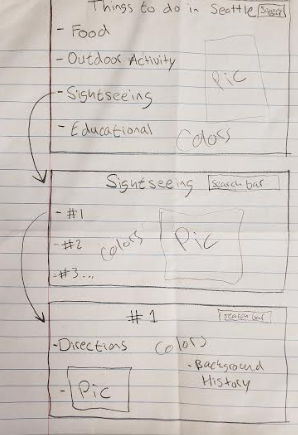 Things to do in Seattle
- Food
- Outdoor Activity
Pic
- Sightseeing
- Educational
Colors
Sightseeing Search bar
- #1
- #2 Colors Pic
- #3...
#1 Search bar
- Directions Colors
- Background
History
- Pic